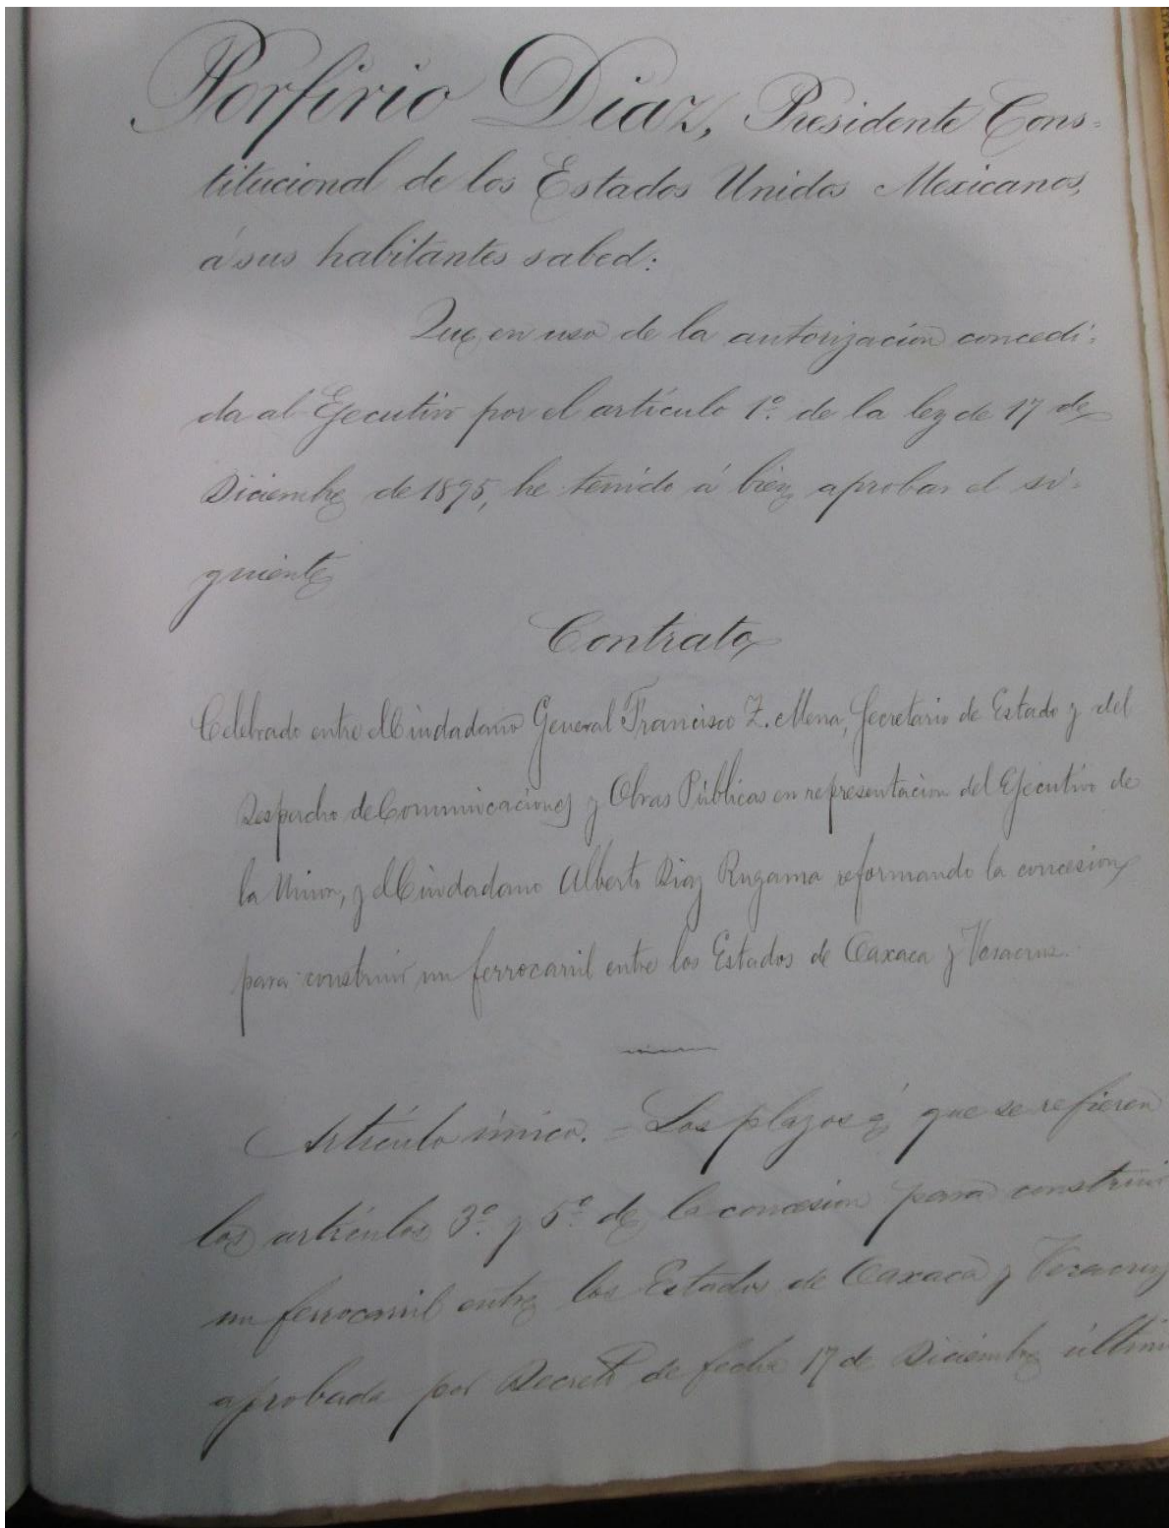 Porfirio Diaz, Presidente Cons-
titucional de los Estados Unidos Mexicanos,
á sus habitantes sabed:
Que en uso de la autorizacion concedi-
da al Ejecutivo por el artículo 1º. de la ley de 17 de
Diciembre de 1895, he tenido á bien aprobar el si-
guiente
Contrato
Celebrado entre el Ciudadano General Francisco Z. Mena, Secretario de Estado y del
Despacho de Comunicaciones y Obras Públicas en representacion del Ejecutivo de
la Union, y el Ciudadano Alberto Diaz Rugama reformando la concesion
para construir un ferrocarril entre los Estados de Oaxaca y Veracruz.
Artículo único. = Los plazos á que se refieren
los artículos 3º. y 5º. de la concesion para construir
un ferrocarril entre los Estados de Oaxaca y Veracruz
aprobada por Decreto de fecha 17 de Diciembre último